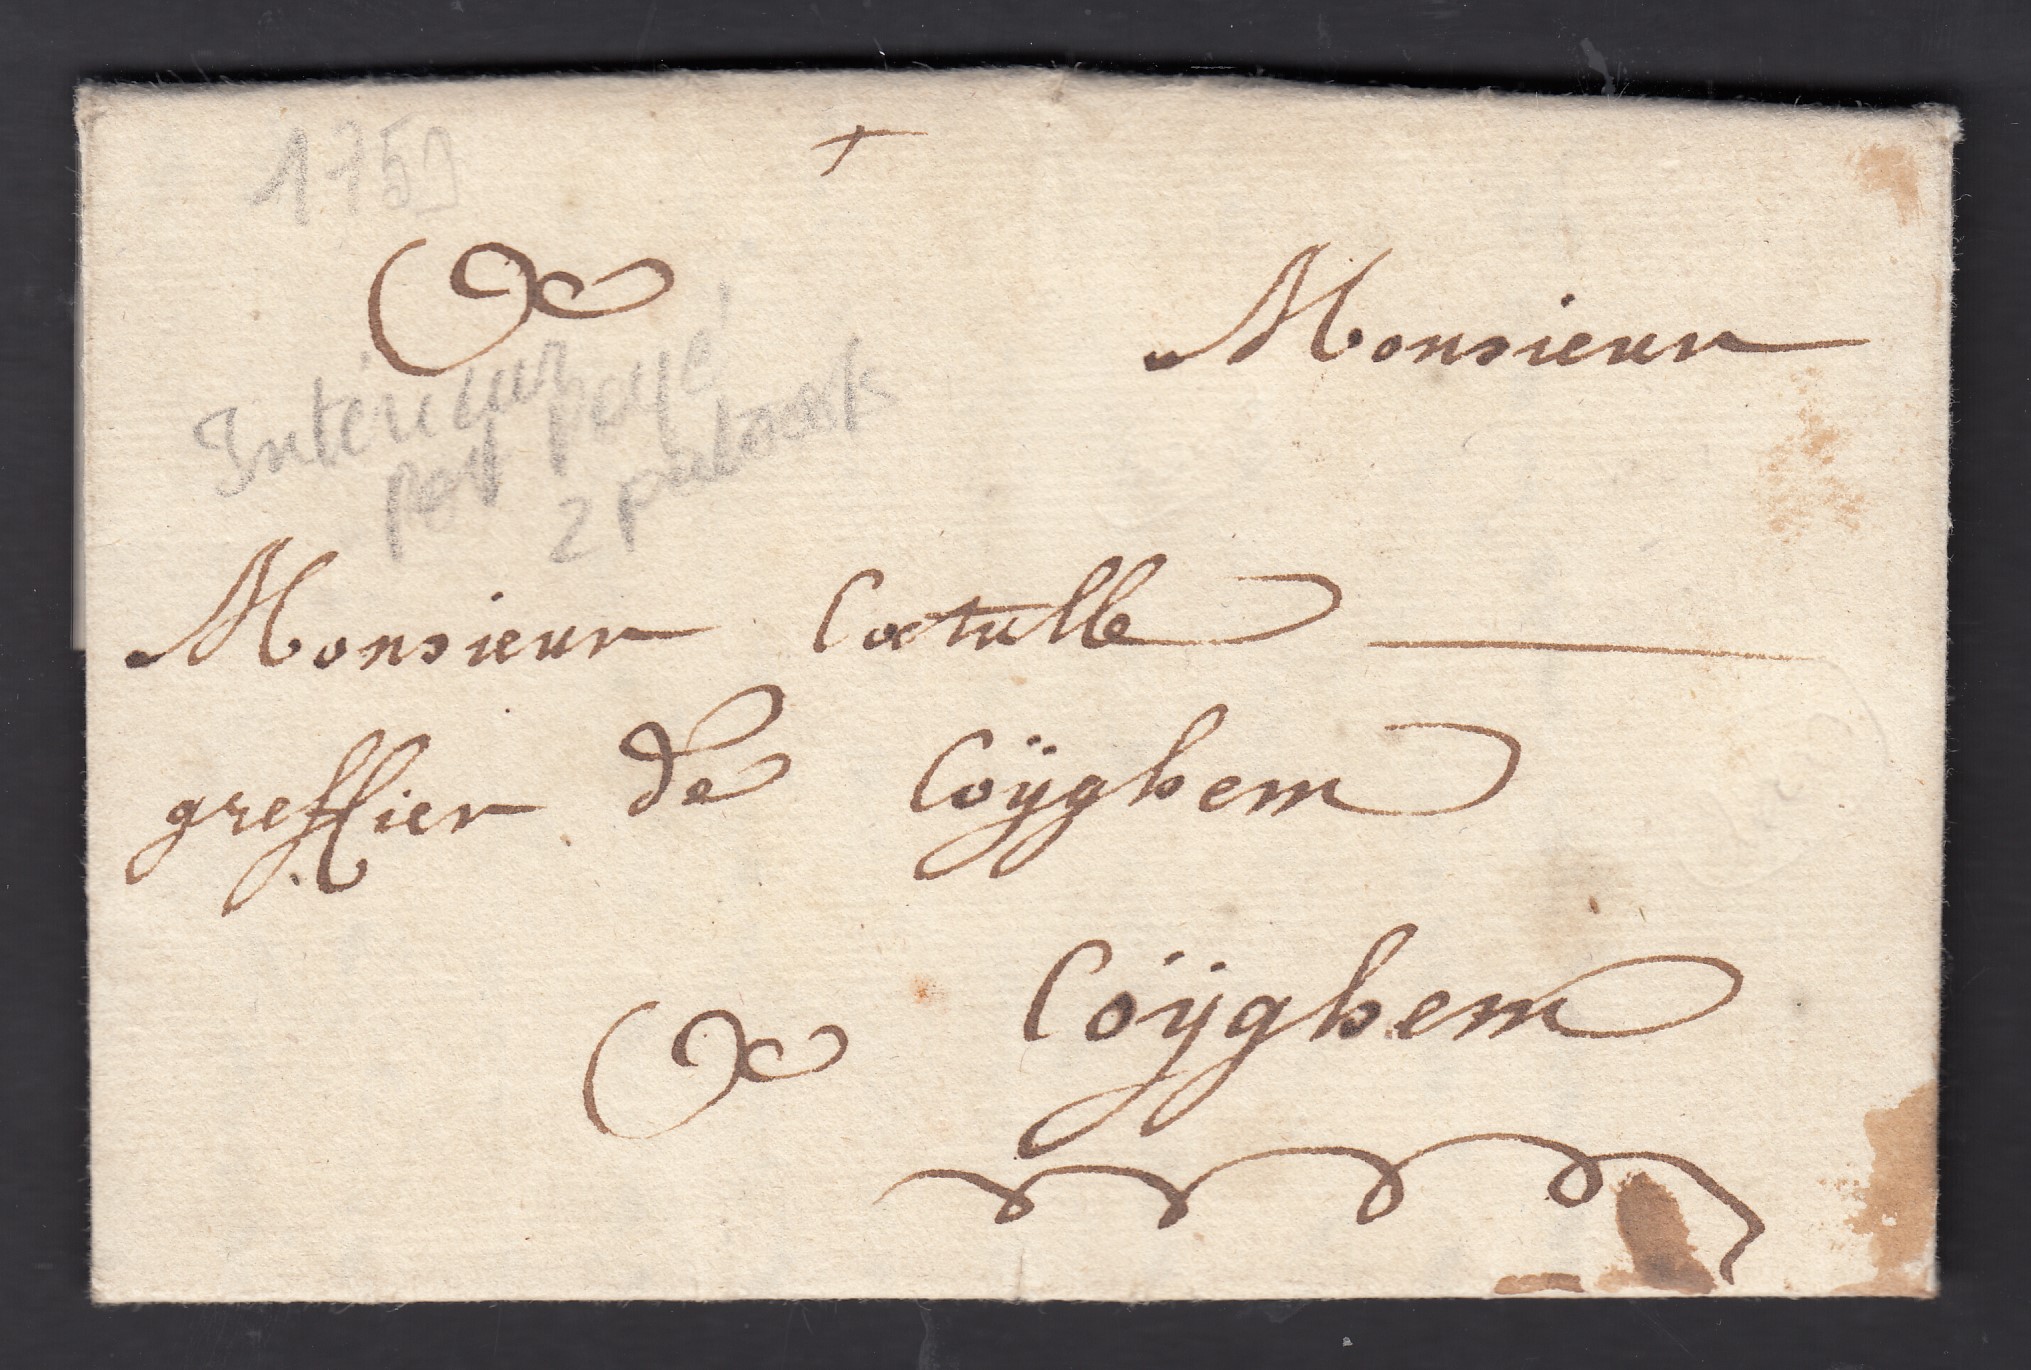 1759
Monsieur
Intérieur
port payé
2 patards
Monsieur Coetulle
greffier de Coÿghem
Coÿghem